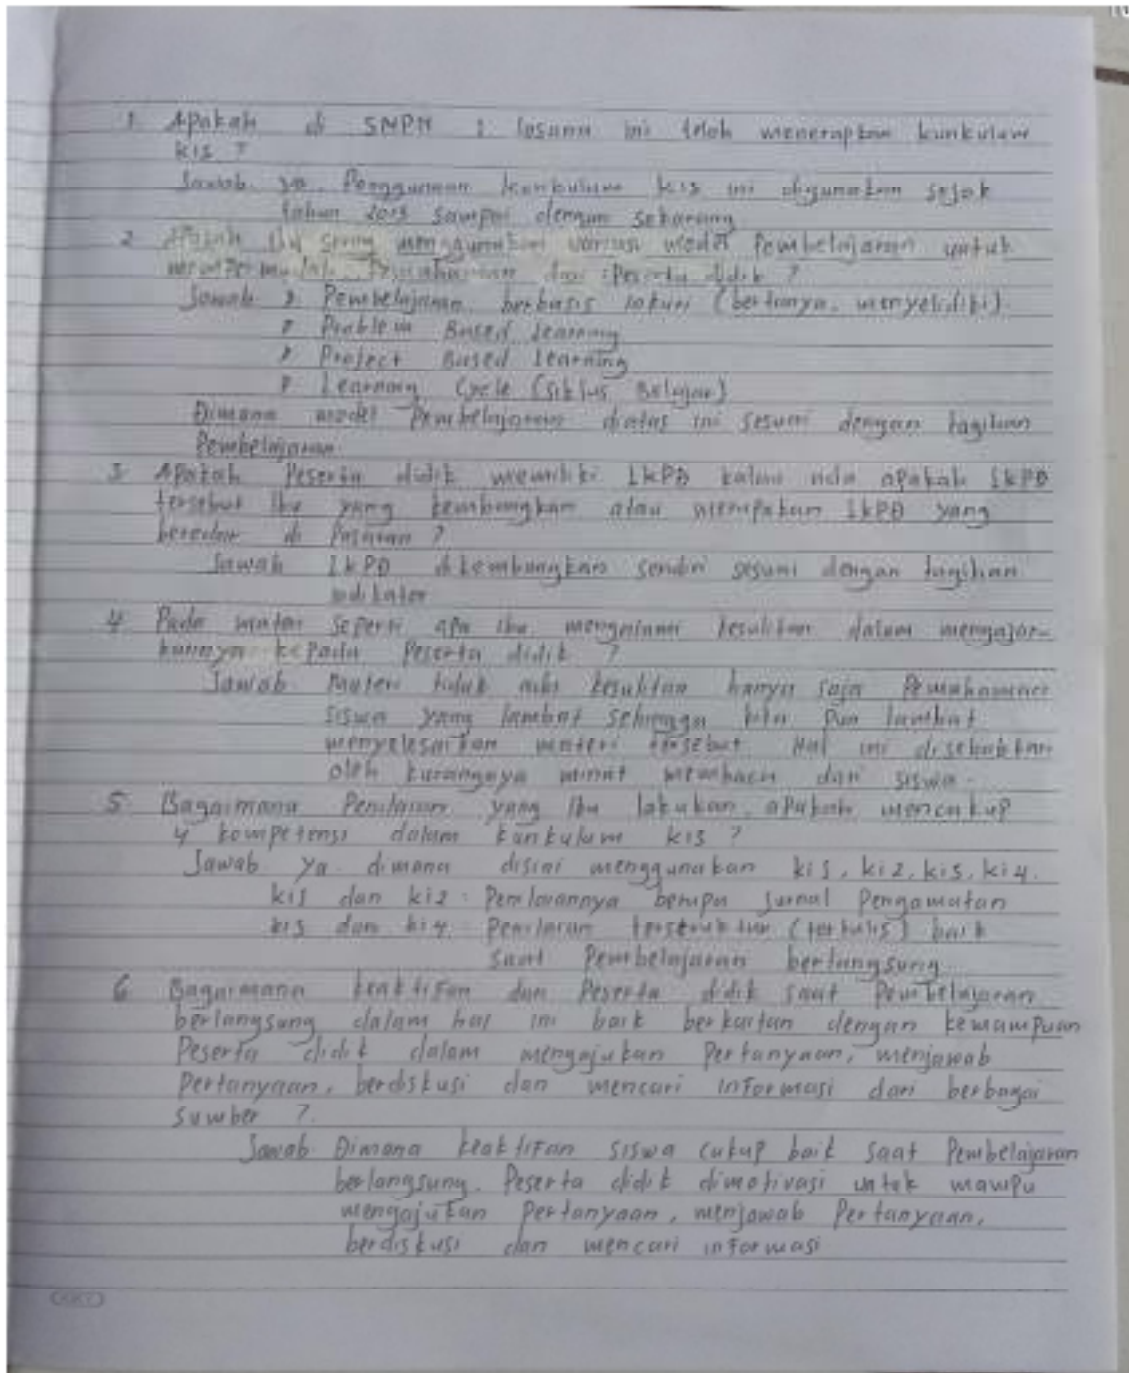 1. Apakah di SMPN 1 ini telah menerapkan kurikulum
k13 ?
Jawab. ya. Penggunaan kurikulum k13 ini digunakan sejak
tahun 2013 sampai dengan sekarang
2. Apakah Ibu sering menggunakan variasi model Pembelajaran untuk
Pemahaman dari Peserta didik ?
Jawab Pembelajaran berbasis inkuiri (bertanya, menyelidiki)
Problem Based Learning
Project Based Learning
Learning Cycle (Siklus Belajar)
Dimana model Pembelajaran diatas ini sesuai dengan tagihan
Pembelajaran.
3 Apakah Peserta didik memiliki LKPD kalau ada apakah LKPD
tersebut Ibu yang kembangkan atau merupakan LKPD yang
beredar di Pasaran ?
Jawab LKPD dikembangkan sendiri sesuai dengan tagihan
indikator
4 Pada materi seperti apa Ibu mengalami kesulitan dalam mengajar-
kannya kepada Peserta didik ?
Jawab. Materi tidak ada kesulitan hanya saja Pemahaman
siswa yang lambat sehingga kita pun lambat
menyelesaikan materi tersebut. Hal ini disebabkan
oleh kurangnya minat membaca dari siswa.
5 Bagaimana Penilaian yang Ibu lakukan, apakah mencakup
4 kompetensi dalam kurikulum k13 ?
Jawab ya. dimana disini menggunakan ki1, ki2, ki3, ki4.
ki1 dan ki2 : Penilaiannya berupa Jurnal Pengamatan
ki3 dan ki4. Penilaian terstruktur (tertulis) baik
saat Pembelajaran berlangsung.
6 Bagaimana keaktifan dari Peserta didik saat Pembelajaran
berlangsung dalam hal ini baik berkaitan dengan kemampuan
Peserta didik dalam mengajukan Pertanyaan, menjawab
Pertanyaan, berdiskusi dan mencari informasi dari berbagai
sumber ?.
Jawab Dimana keaktifan siswa cukup baik saat Pembelajaran
berlangsung. Peserta didik dimotivasi untuk mampu
mengajukan Pertanyaan, menjawab Pertanyaan,
berdiskusi dan mencari informasi